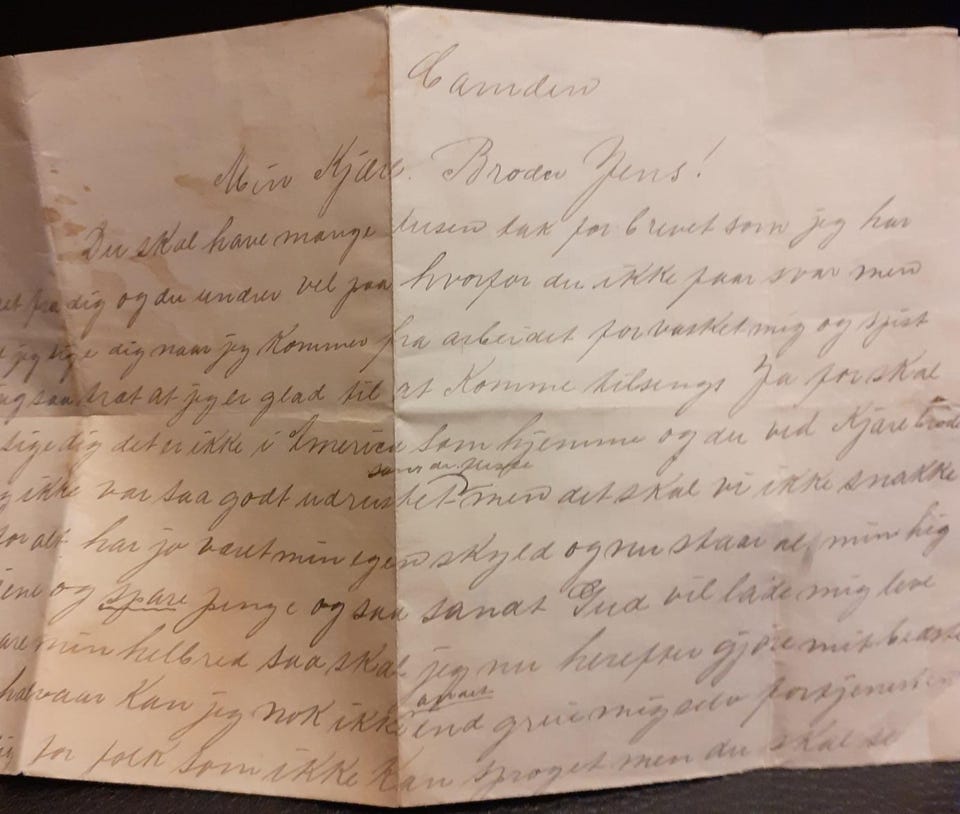 Camden
Min Kjære. Broder Jens!
Du skal have mange tusen tak for brevet som jeg har
fra dig og du undrer vel paa hvorfor du ikke faar svar men
jeg sige dig naar jeg Kommer fra arbeidet for vasket mig og spist
saa træt at jeg er glad til at Komme tilsengs Ja for skal
sige dig det er ikke i America som hjemme og du ved Kjære Broder
ikke var saa godt udrustet men det skal vi ikke snakke
for alt har jo været min egen skyld og nu staar al min hig
og spare penge og saa sandt Gud vil lade mig leve
min helbred saa skal jeg nu herefter gjøre mit bedste
halvaar Kan jeg nok ikke andet end greie mig selv fortjenesten
for folk som ikke Kan sproget men du skal se